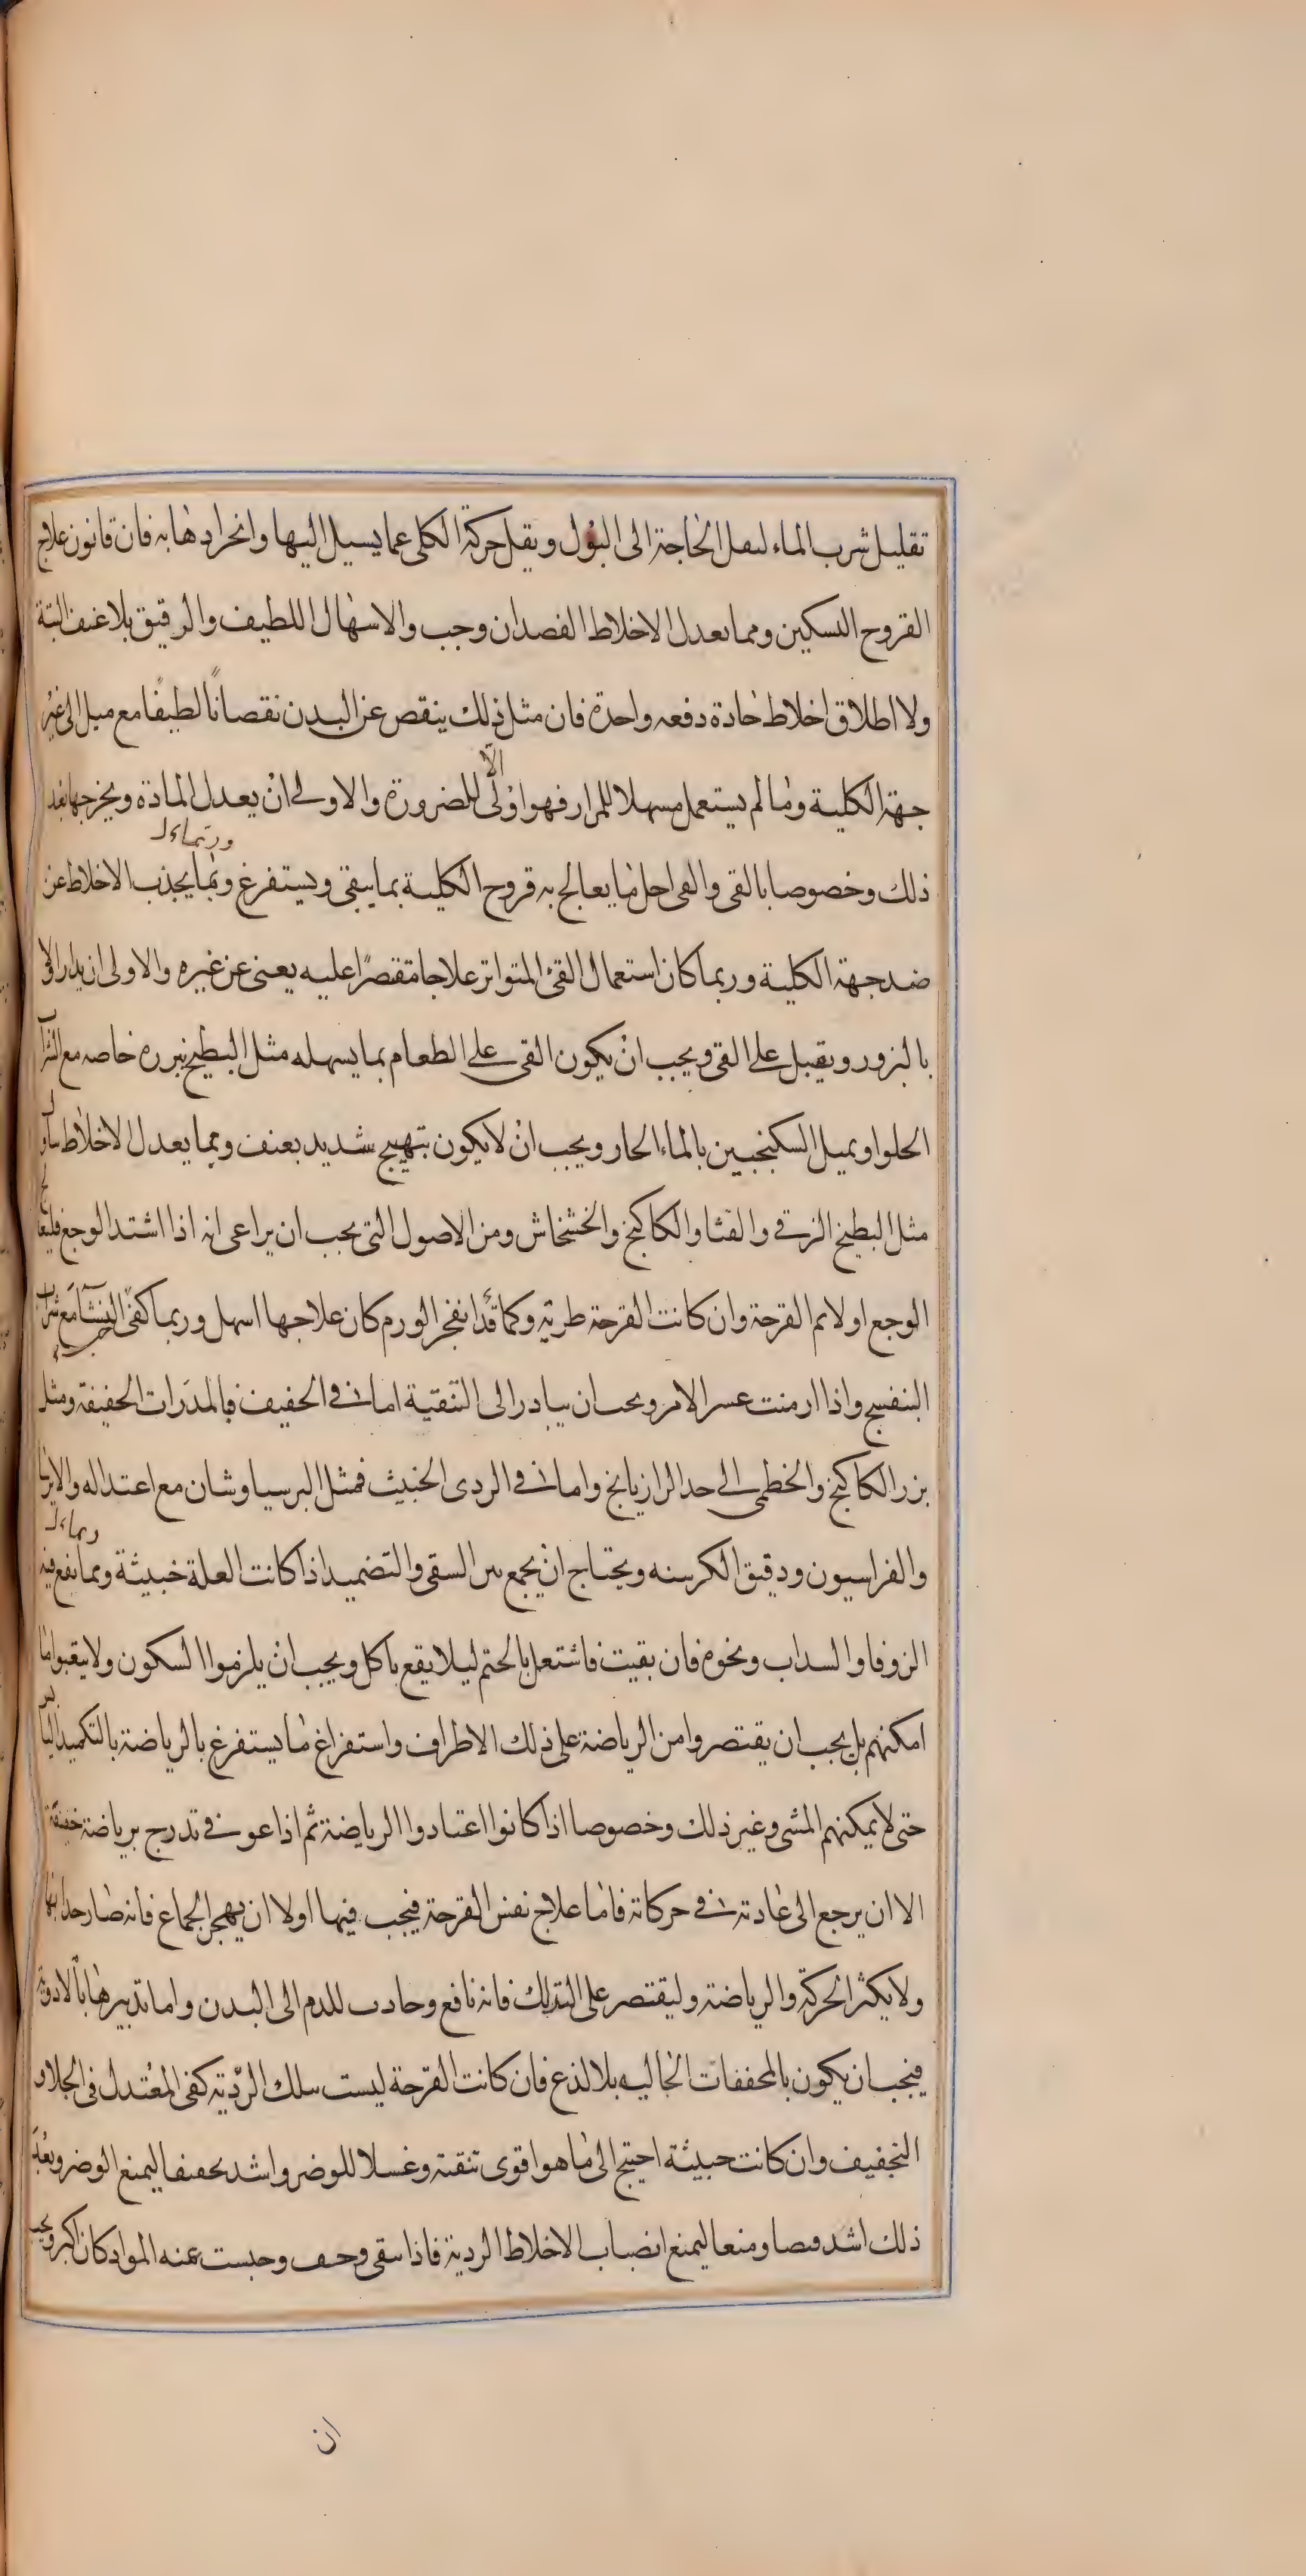 تقليل شرب الماء لىقل الحاجة الى البول ويقل حركة الكلى عما يسيل اليها وانحرادها به فان قانون علاج
القروح التسكين ومما يعدل الاخلاط الفصد ان وجب والاسهال اللطيف والرقيق بلا عنف البتة
ولا اطلاق اخلاط حادة دفعه واحدة فان مثل ذلك ينقص عن البدن نقصانًا لطيفًا مع ميل الى غير
جهة الكلية وما لم يستعمل مسهلا للمرار فهو اولى الّا للضرورة والاولى ان يعدل المادة ويخرجها بعد
ذلك وخصوصا بالقى والقى اجل ما يعالج به قروح الكلية بما ينقى ويستفرغ وبما يجذب الاخلاط عن
ضد جهة الكلية وربما كان استعمال القئ المتواتر علاجا مقتصرًا عليه يعنى عن غيره والاولى ان يدار الاو
بالبزور ويقبل على القى ويجب ان يكون القى على الطعام بما يسهله مثل البطيخ ببزره خاصه مع الشراب
الحلو او بميل السكنجبين بالماء الحار ويجب ان لا يكون بتهييج شديد بعنف ومما يعدل الاخلاط
مثل البطيخ الزقى والقثا والكاكنج والخشخاش ومن الاصول التى يجب ان يراعى انه اذا اشتد الوجع فليعالج
الوجع اولا ثم القرحة وان كانت القرحة طرية وكما قد انفجر الورم كان علاجها اسهل وربما كفى النشا مع شراب
البنفسج واذا ازمنت عسر الامر ويجب ان يبادر الى التنقية اما فى الخفيف فبالمدرات الخفيفة ومثل
بزر الكاكنج والخطمى الى حد الرازيانج واما فى الردى الخبيث فمثل البرسياوشان مع اعتداله والايرسا
والفراسيون ودقيق الكرسنه ويحتاج ان يجمع بين السقى والتضميد اذا كانت العلة خبيثة ومما ينفع فيه
الزوفا والسداب ونحوه فان بقيت فاشتعل بالختم ليلا يقع باكل ويجب ان يلزموا السكون ولا يتعبوا ما
امكنهم بل يجب ان يقتصروا من الرياضة على ذلك الاطراف واستفراغ ما يستفرغ بالرياضة بالتكميد اليابس
حتى لا يمكنهم المشى وغير ذلك وخصوصا اذا كانوا اعتادوا الرياضة ثم اذا عوفى تدرج برياضة خفيفة
الا ان يرجع الى عادته فى حركاته فاما علاج نفس القرحة فيجب فيها اولا ان يهجر الجماع فانه ضار جدا بها
ولا يكثر الحركة والرياضة وليقتصر على التدلك فانه نافع وجاذب للدم الى البدن واما تدبيرها بالادوية
فيجب ان يكون بالمجففات الجاليه بلا لذع فان كانت القرحة ليست بتلك الرديّة كفى المعتدل فى الجلاء و
التجفيف وان كانت خبيثة احتيج الى ما هو اقوى تنقية وغسلا للوضر واشد تجفيفا ليمنع الوضر وبعد
ذلك اشد قبضا ومنعا ليمنع انصباب الاخلاط الردية فاذا نقى وجفف وحبست عنه المواد كان اكبر ويجب
ان